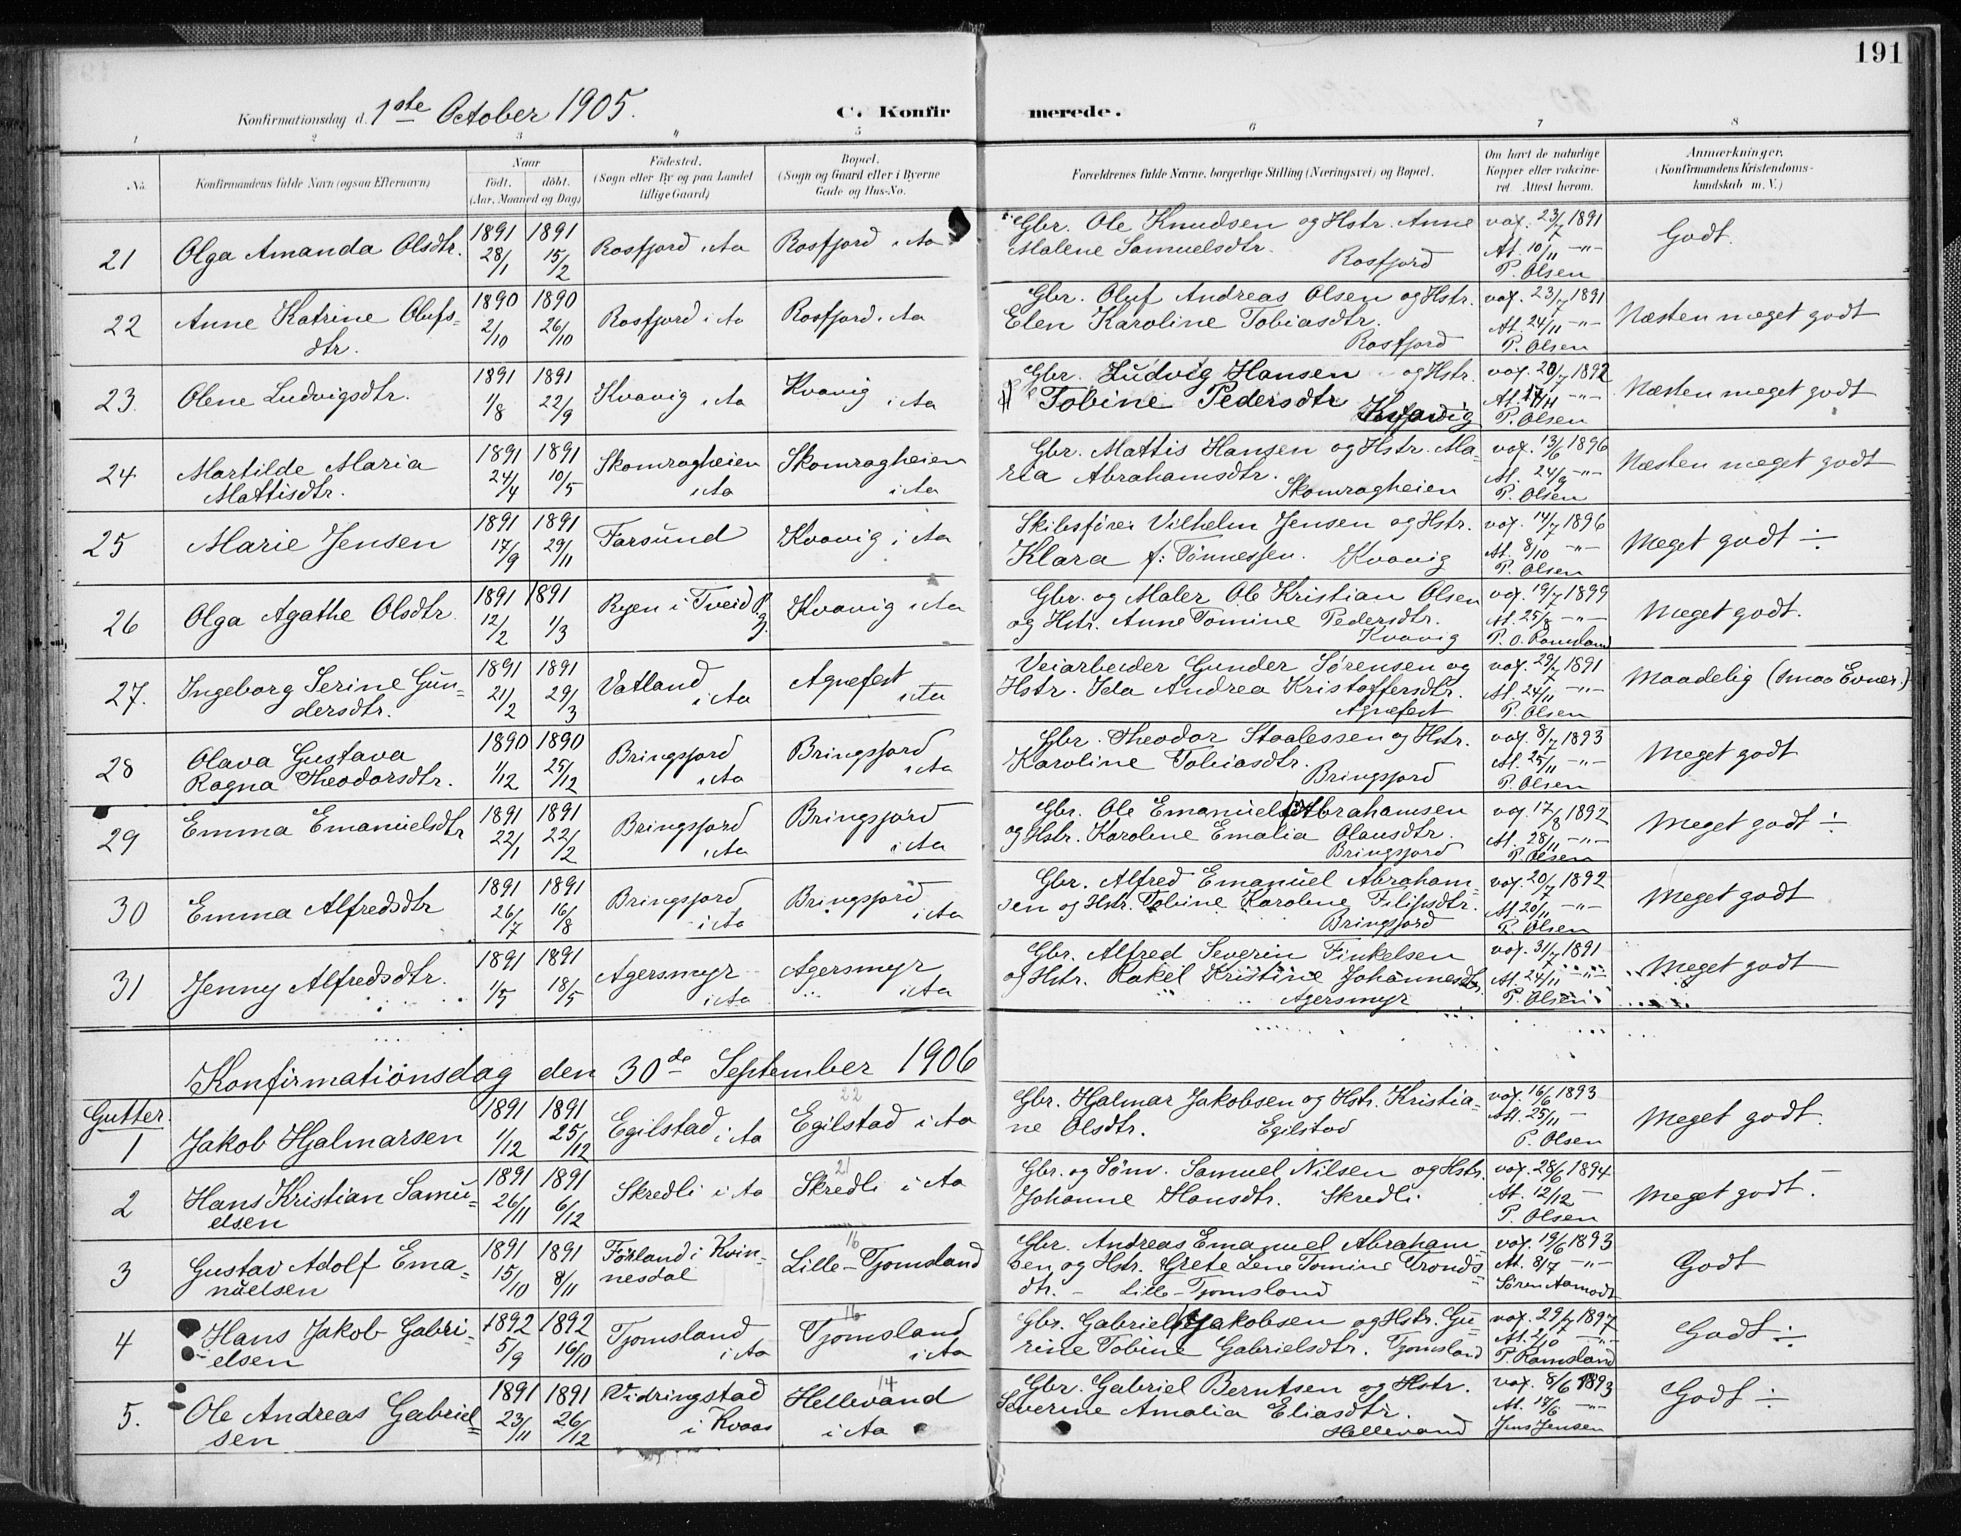 191
Konfirmationsdag d. 1ste October 1905. C. Konfirmerede.
1 2 3 " 5 6 7 8
No. Konfirmandens fulde Navn (ogsaa Efternavn) Naar født. døbt. (Aar, Maaned og Dag) Fødested. (Sogn eller By og paa Landet tillige Gaard) Bopæl. (Sogn og Gaard eller i Byerne Gade og Hus-No. Forældrenes fulde Navne, borgerlige Stilling (Næringsvei) og Bopæl. Om havt de naturlige Kopper eller vaccineret. Attest herom. Anmærkninger. (Konfirmandens Kristendomskundskab m. V.)
21 Olga Amanda Olsdtr. 1891 28/1 1891 15/2 Rosfjord i Aa Rosfjord i Aa Gbr. Ole Knudsen og Hstr. Anne
Malene Samuelsdtr. Rosfjord vax. 23/7 1891 At. 10/11 -"- P. Olsen Godt.
22 Anne Katrine Olufsdtr. 1890 2/10 1890 26/10 Rosfjord i Aa Rosfjord i Aa Gbr. Oluf Andreas Olsen og Hstr.
Elen Karoline Tobiasdtr. Rosfjord vax. 23/7 1891 At. 24/11 -"- P. Olsen Næsten meget godt
23. Olene Ludvigsdtr. 1891 1/8 1891 22/9 Kvavig i Aa Kvavig i Aa Gbr. Ludvig Hansen og Hstr.
Tobine Pedersdtr Kvavig vax. 20/7 1892 At. -"- P. Olsen Næsten meget godt
24 Martilde Maria
Mattisdtr. 1891 24/4 1891 10/5 Skomragheien i Aa Skomragheien i Aa Gbr. Mattis Hansen og Hstr. Ma-
ria Abrahamsdtr. Skomragheien vax. 13/6 1896 At. 24/9 -"- P. Olsen Næsten meget godt
25 Marie Jensen 1891 17/9 1891 29/11 Farsund Kvavig i Aa Skibsfører Vilhelm Jensen og Hstr.
Klara f: Tønnessen. Kvavig vax. 14/7 1896 At. 8/10 -"- P. Olsen Meget godt ÷
26 Olga Agathe Olsdtr. 1891 12/2 1891 1/3 Ryen i Tveid Kvavig i Aa Gbr. og Maler Ole Kristian Olsen
og Hstr. Anne Tomine Pedersdtr. Kvavig vax. 19/7 1899 At. 25/8 -"- P. O. Ramsland Meget godt.
27. Ingeborg Serine Gun-
dersdtr. 1891 21/2 1891 29/3 Vatland i Aa Agnefest i Aa Veiarbeider Gunder Sørensen og
Hstr. Ida Andrea Kristoffersdtr. Agnefest vax. 29/7 1891 At. 24/11 -"- P. Olsen Maadelig (smaa Evner.)
28 Olava Gustava
Ragna Theodorsdtr. 1890 1/12 1890 25/12 Bringsjord i Aa Bringsjord i Aa Gbr. Theodor Staalessen og Hstr.
Karoline Tobiasdtr. Bringsjord vax. 8/7 1893 At. 25/11 -"- P. Olsen Meget godt
29 Emma Emanuelsdtr 1891 22/1 1891 22/2 Bringsjord i Aa Bringsjord i Aa Gbr. Ole Emanuel Abrahamsen
og Hstr. Karoline Emalia Olausdtr. Bringsjord vax. 17/8 1892 At. 28/11 -"- P. Olsen Meget godt ÷
30 Emma Alfredsdtr 1891 26/7 1891 16/8 Bringsjord i Aa Bringsjord i Aa Gbr. Alfred Emanuel Abraham-
sen og Hstr. Tobine Karoline Filipsdtr. Bringsjord vax. 20/7 1892 At. 20/11 -"- P. Olsen Meget godt
31 Jenny Alfredsdtr. 1891 1/5 1891 18/5 Agersmyr i Aa Agersmyr i Aa Gbr. Alfred Severin Finkelsen
og Hstr. Rakel Kristine Johannesdtr. Agersmyr vax. 31/7 1891 At. 24/11 -"- P. Olsen Meget godt
Konfirmationsdag den 30de September 1906
Gutter.
1 Jakob Hjalmarsen 1891 1/12 1891 25/12 Egilstad i Aa 22 Egilstad i Aa Gbr. Hjalmar Jakobsen og Hstr. Kristia-
ne Olsdtr. Egilstad vax. 16/6 1893 Att. 25/11 - P. Olsen Meget godt.
2 Hans Kristian Samu-
elsen 1891 26/11 1891 6/12 Skredli i Aa 21 Skredli i Aa Gbr. og Søm. Samuel Nilsen og Hstr.
Johanne Hansdtr. Skredli. vax. 28/6 1894 At. 12/12 - P. Olsen Meget godt.
3 Gustav Adolf Ema-
nuelsen 1891 15/10 1891 8/11 Førland i Kvin-
nesdal 16 Lille-Tjomsland Gbr. Andreas Emanuel Abraham-
sen og Hstr. Grete Lene Tomine Tronds-
dtr. - Lille-Tjomsland vax. 19/6 1893 At. 8/7 -"- Søren Aamodt Godt
4 Hans Jakob Gabri-
elsen 1892 5/9 1892 16/10 Tjomsland i Aa 16 Tjomsland i Aa Gbr. Gabriel Jakobsen og Hstr. Gu-
rine Tobine Gabrielsdtr. Tjomsland vax. 29/7 1897 At. 2/10 -"- P. Ramsland Godt ÷
5. Ole Andreas Gabriel-
sen 1891 23/11 1891 26/12 Vidringstad i Kvaas 14 Hellevand i Aa Gbr. Gabriel Berntsen og Hstr.
Severine Amalia Eliasdtr. Hellevand vax. 8/6 1893 At. 14/6 -"- Jens Jensen Godt ÷